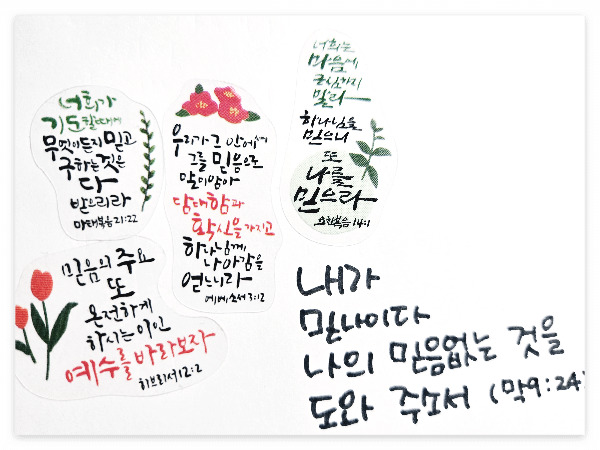 너희가
기도할때에
무엇이든지 믿고
구하는것은
다
받으리라
마태복음 21:22
우리가 그 안에서
그를 믿음으로
말미암아
담대함과
확신을 가지고
하나님께
나아감을
얻느니라
에베소서 3:12
너희는
마음에
근심하지
말라
하나님을
믿으니
또
나를
믿으라
요한복음 14:1
믿음의 주요
또
온전하게
하시는 이인
예수를 바라보자
히브리서 12:2
내가
믿나이다
나의 믿음없는 것을
도와 주소서 (막9:24)